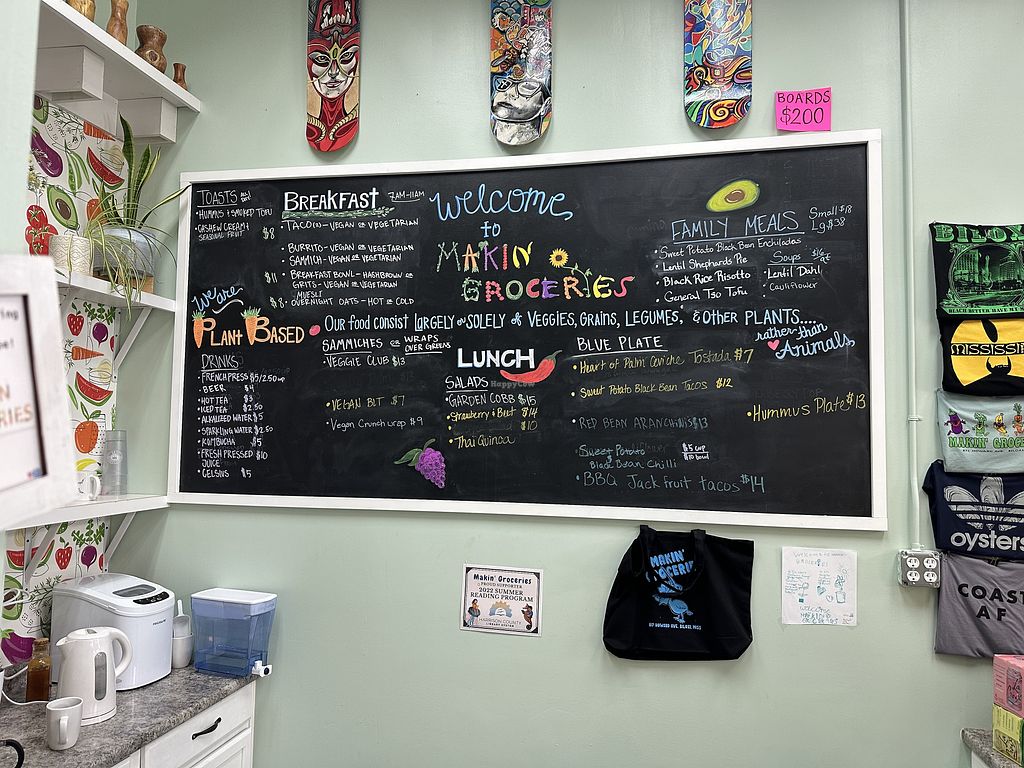 BOARDS
$200
TOASTS
• HUMMUS & SMOKED TOFU
• CASHEW CREAM &
SEASONAL FRUIT
$8
BREAKFAST 7AM-11AM
• TACO(S) - VEGAN OR VEGETARIAN
• BURRITO - VEGAN OR VEGETARIAN
• SAMMICH - VEGAN OR VEGETARIAN
$11 • BREAKFAST BOWL - HASHBROWN OR
GRITS - VEGAN OR VEGETARIAN
MUESLI
$8 • OVERNIGHT OATS - HOT OR COLD
Welcome
to
MAKIN
GROCERIES
FAMILY MEALS Small $18
Lg $38
• Sweet Potato Black Bean Enchiladas
• Lentil Shepherds Pie
• Black Rice Risotto
• General Tso Tofu
Soups $16 qt
• Lentil Dahl
• Cauliflower
We are
PLANT BASED • OUR FOOD CONSIST LARGELY OR SOLELY OF VEGGIES, GRAINS, LEGUMES, & OTHER PLANTS....
rather than
Animals
DRINKS
• FRENCH PRESS $5/2.50
• BEER $4
• HOT TEA $3
• ICED TEA $2.50
• ALKALIZED WATER $5
• SPARKLING WATER $2.50
• KOMBUCHA $5
• FRESH PRESSED $10
JUICE
• CELSIUS $5
SAMMICHES OR WRAPS
OVER GREENS
• VEGGIE CLUB $13
• VEGAN BLT $7
• Vegan Crunch wrap $9
LUNCH
HappyCow
SALADS
• GARDEN COBB $15
• Strawberry & Beet $14
$10
• Thai Quinoa
BLUE PLATE
• Heart of Palm Ceviche Tostada $7
• Sweet Potato Black Bean Tacos $12
• RED BEAN ARANCHINIS $13
• Sweet Potato $5 cup
Black Bean Chilli $10 bowl
• BBQ Jack fruit tacos $14
• Hummus Plate $13
Makin' Groceries
PROUD SUPPORTER
2022 SUMMER
READING PROGRAM
HARRISON COUNTY
LIBRARY SYSTEM
MAKIN'
GROCERIE
BILOX
MISSISSIP
MAKIN' GROCER
oysters
COAST
AF